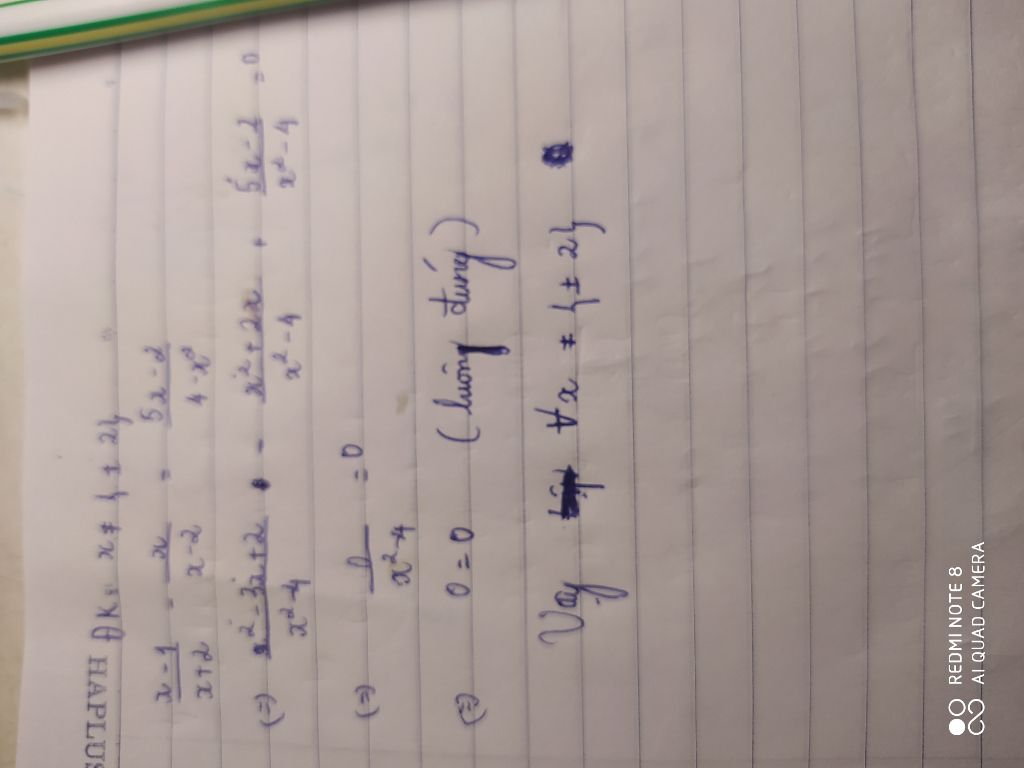 HAPPLUS ĐK: x ≠ {±2}
(x-1)/(x+2) - x/(x-2) = (5x-2)/(4-x²)
(=) (x²-3x+2)/(x²-4) - (x²+2x)/(x²-4) + (5x-2)/(x²-4) = 0
(=) 0/(x²-4) = 0
(=) 0 = 0 (luông đúng)
Vậy ∀x ≠ {±2}
REDMI NOTE 8
AI QUAD CAMERA